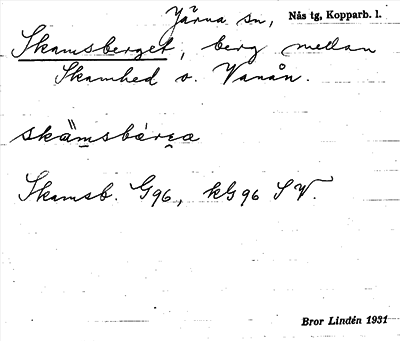 Järna sn, Nås tg, Kopparb. l.
Skamsberget, berg medan
Skamhed o. Vanån.
skä̈msbär̯a
Skamsb. G96, kG96 SV.
Bror Lindén 1931